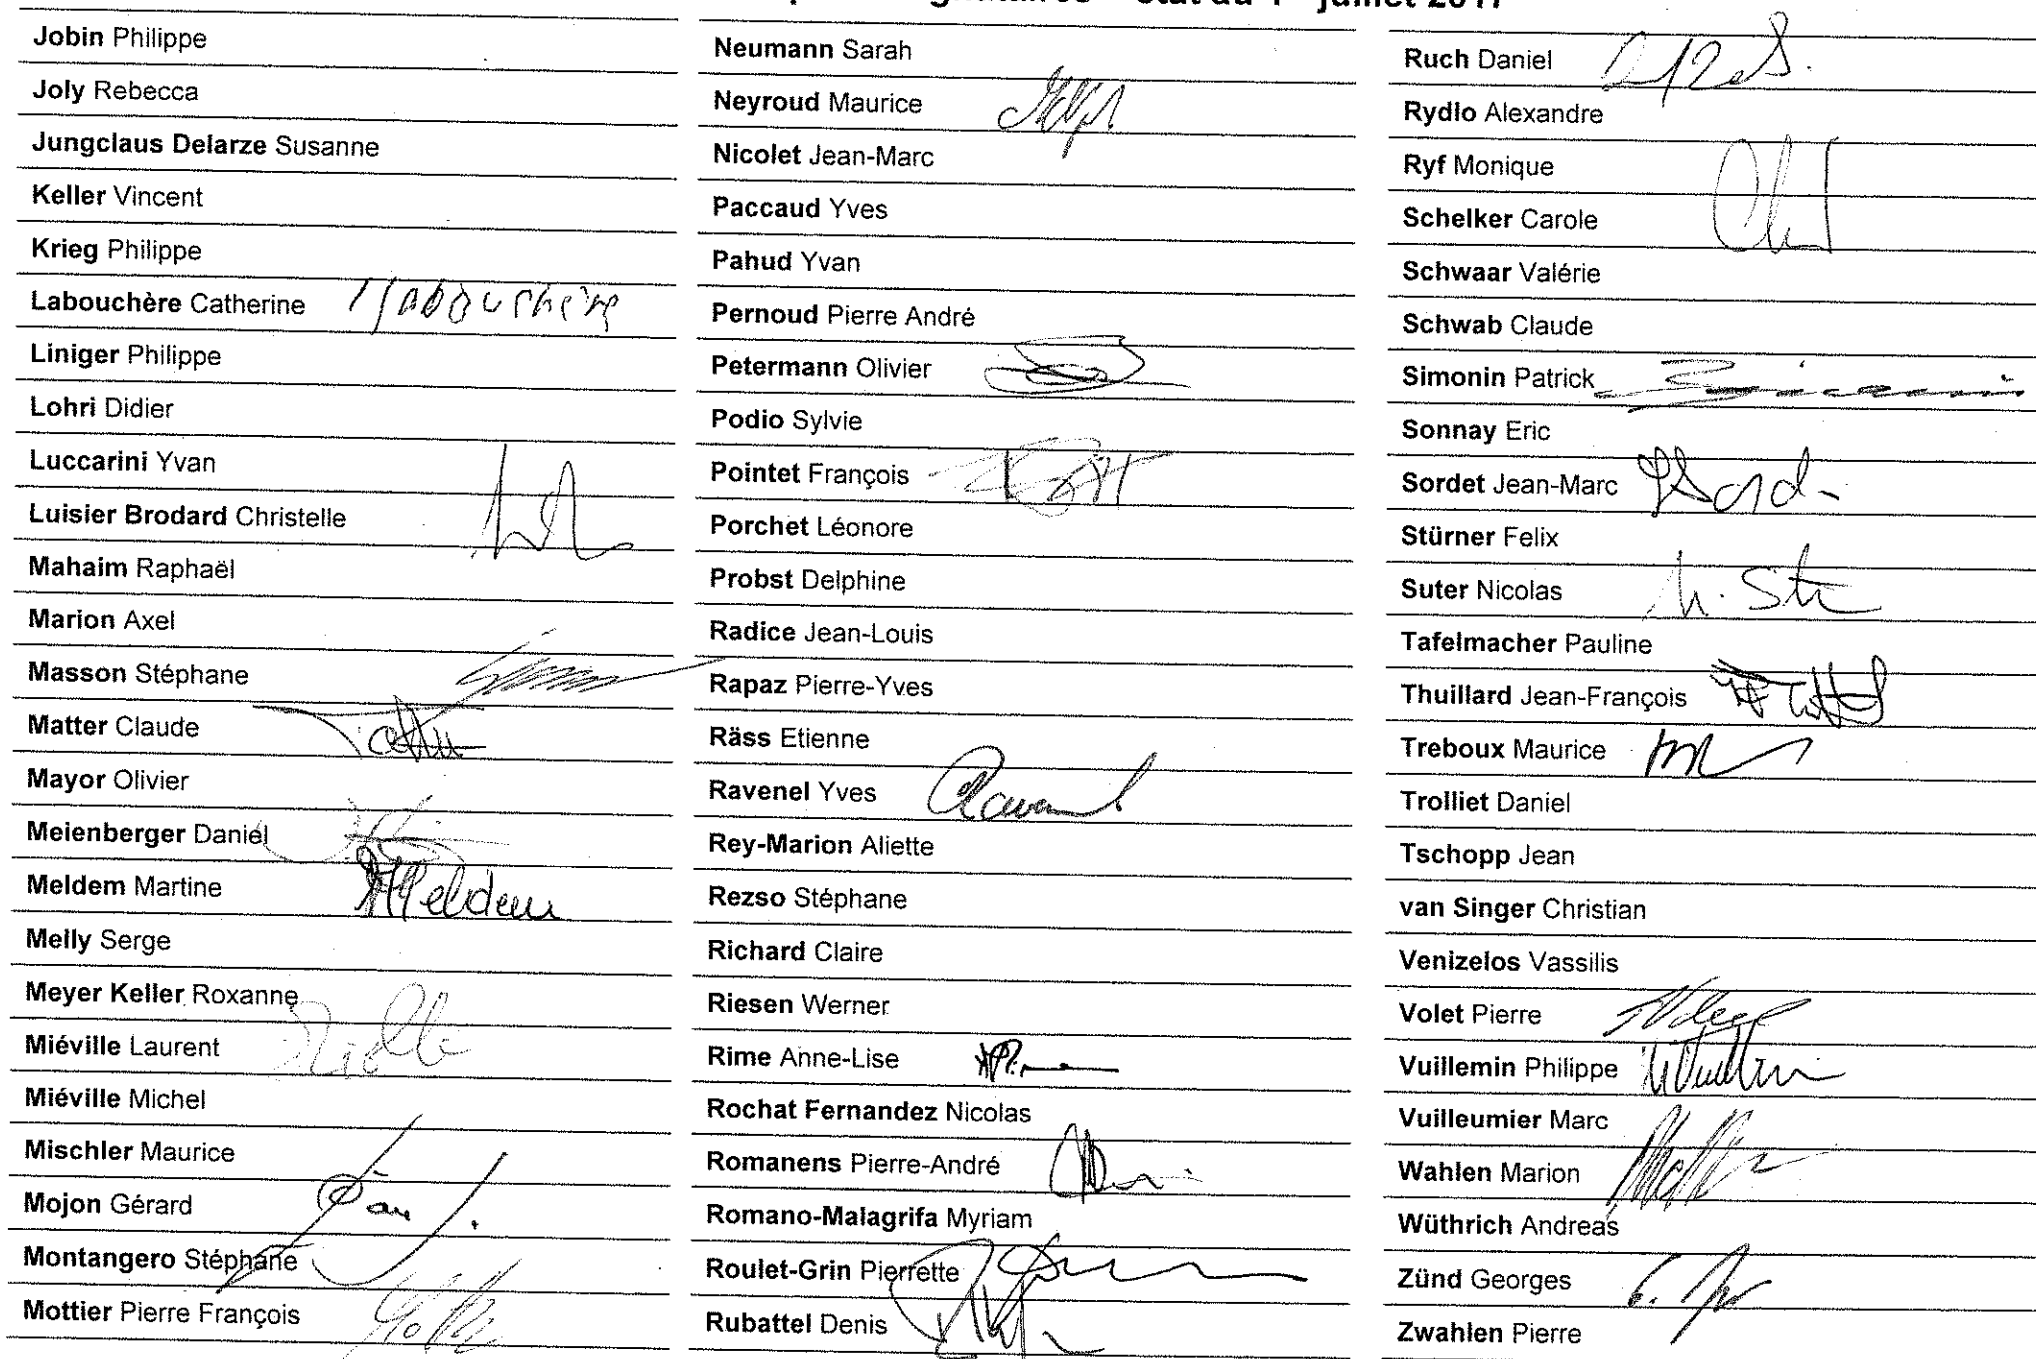 état du 1er juillet 2017
Jobin Philippe
Joly Rebecca
Jungclaus Delarze Susanne
Keller Vincent
Krieg Philippe
Labouchère Catherine Labouchère
Liniger Philippe
Lohri Didier
Luccarini Yvan
Luisier Brodard Christelle
Mahaim Raphaël
Marion Axel
Masson Stéphane
Matter Claude
Mayor Olivier
Meienberger Daniel
Meldem Martine Meldem
Melly Serge
Meyer Keller Roxanne
Miéville Laurent
Miéville Michel
Mischler Maurice
Mojon Gérard
Montangero Stéphane
Mottier Pierre François
Neumann Sarah
Neyroud Maurice
Nicolet Jean-Marc
Paccaud Yves
Pahud Yvan
Pernoud Pierre André
Petermann Olivier
Podio Sylvie
Pointet François
Porchet Léonore
Probst Delphine
Radice Jean-Louis
Rapaz Pierre-Yves
Räss Etienne
Ravenel Yves
Rey-Marion Aliette
Rezso Stéphane
Richard Claire
Riesen Werner
Rime Anne-Lise
Rochat Fernandez Nicolas
Romanens Pierre-André
Romano-Malagrifa Myriam
Roulet-Grin Pierrette
Rubattel Denis
Ruch Daniel
Rydlo Alexandre
Ryf Monique
Schelker Carole
Schwaar Valérie
Schwab Claude
Simonin Patrick
Sonnay Eric
Sordet Jean-Marc
Stürner Felix
Suter Nicolas
Tafelmacher Pauline
Thuillard Jean-François
Treboux Maurice
Trolliet Daniel
Tschopp Jean
van Singer Christian
Venizelos Vassilis
Volet Pierre
Vuillemin Philippe
Vuilleumier Marc
Wahlen Marion
Wüthrich Andreas
Zünd Georges
Zwahlen Pierre